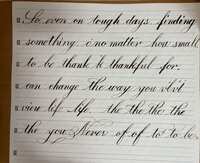 So, even on tough days finding
something : no matter how small
to be thank k thankful for.
can change the way you
view life life the the the the
the you Never of of to to be